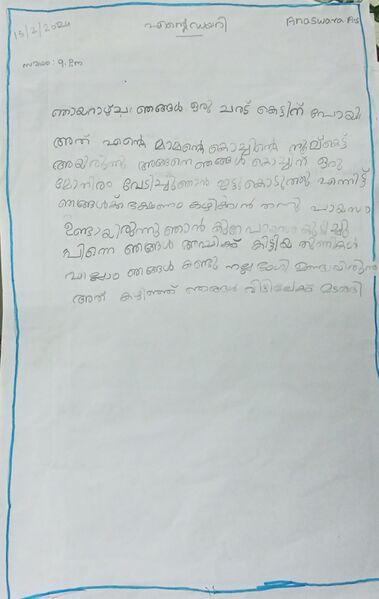 15/2/2024 എന്റെ ഡയറി Anaswara A.S
സമയം: 9. Pm
ഞായറാഴ്ച ഞങ്ങൾ ഒരു ചരട് കെട്ടിന് പോയി
അത് എന്റെ മാമന്റെ കൊച്ചിന്റെ നൂല്കെട്ട്
ആയിരുന്നു അങ്ങനെ ഞങ്ങൾ കൊച്ചിന് ഒരു
മോതിരം വേടിച്ചു ഞാൻ ഇട്ടു കൊടുത്തു എന്നിട്ട്
ഞങ്ങൾക്ക് ഭക്ഷണം കഴിക്കാൻ തന്നു പായസം
ഉണ്ടായിരുന്നു ഞാൻ കുറെ പായസം കുടിച്ചു
പിന്നെ ഞങ്ങൾ കിട്ടിയ
ഞങ്ങൾ കണ്ടു നല്ല ഭംഗി ഉണ്ടായിരുന്നു
അത് കഴിഞ്ഞ് ഞങ്ങൾ വീട്ടിലേക്ക് മടങ്ങി